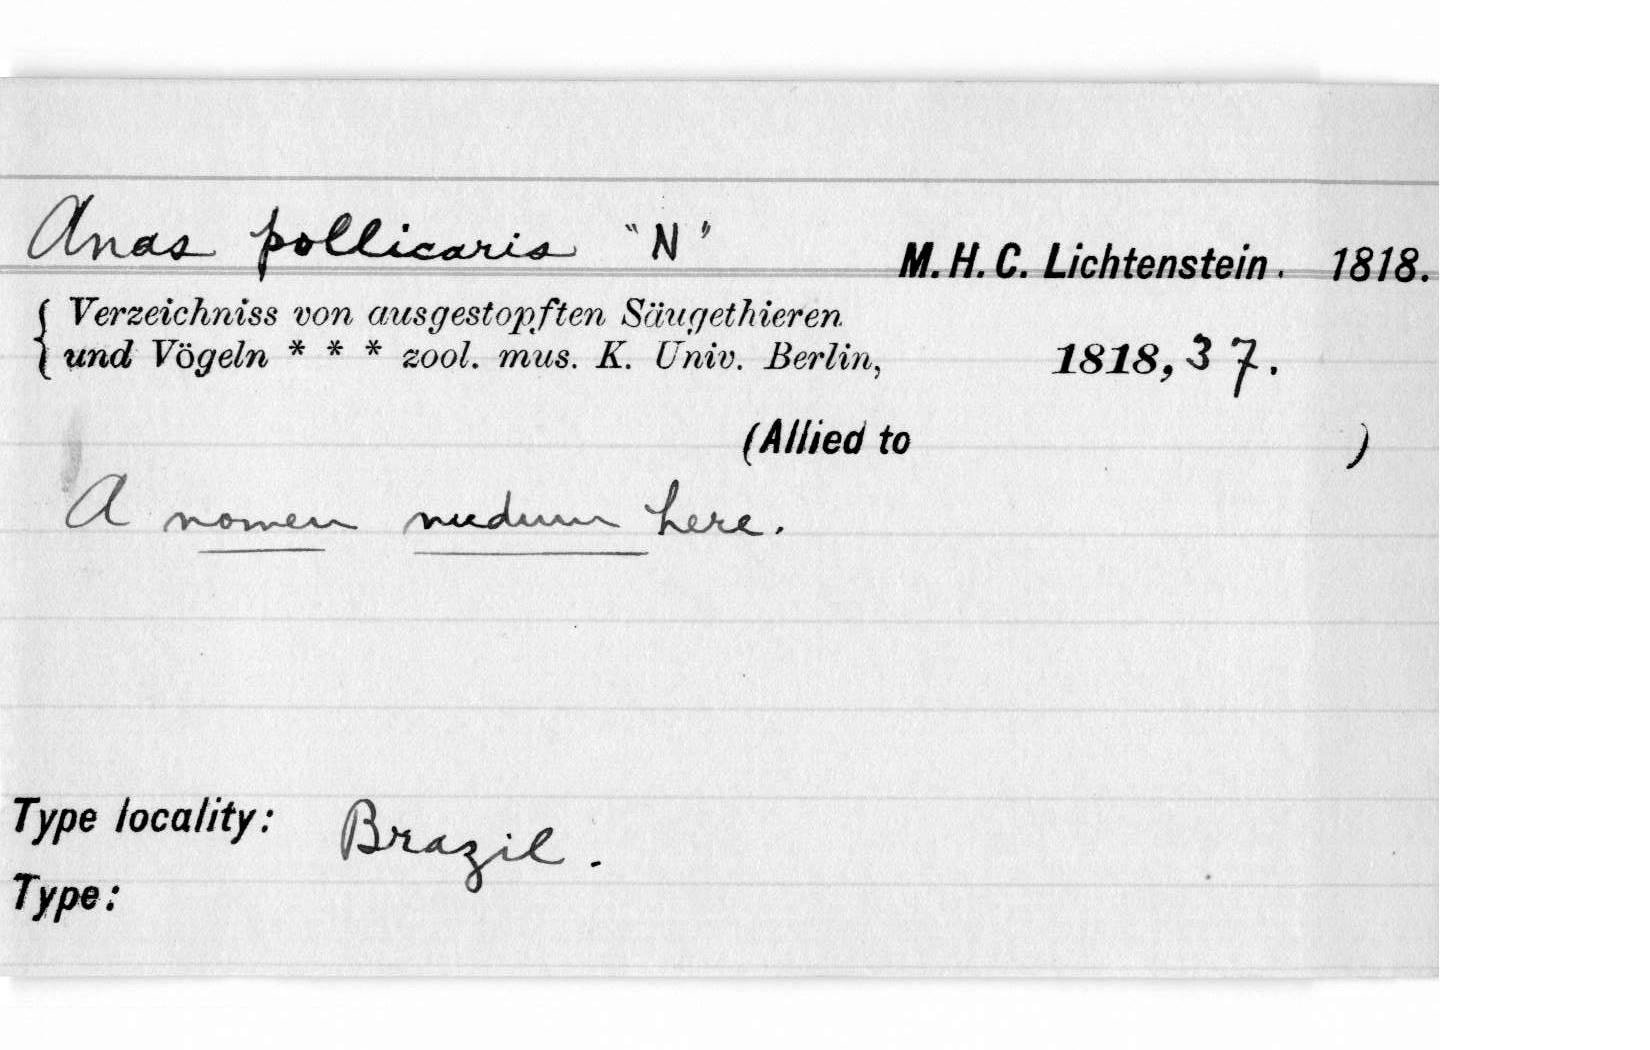 Anas pollicaris "N" M. H. C. Lichtenstein. 1818.
{ Verzeichniss von ausgestopften Säugethieren
{ und Vögeln * * * zool. mus. K. Univ. Berlin, 1818, 37.
(Allied to )
A nomen nudum here.
Type locality: Brazil.
Type: